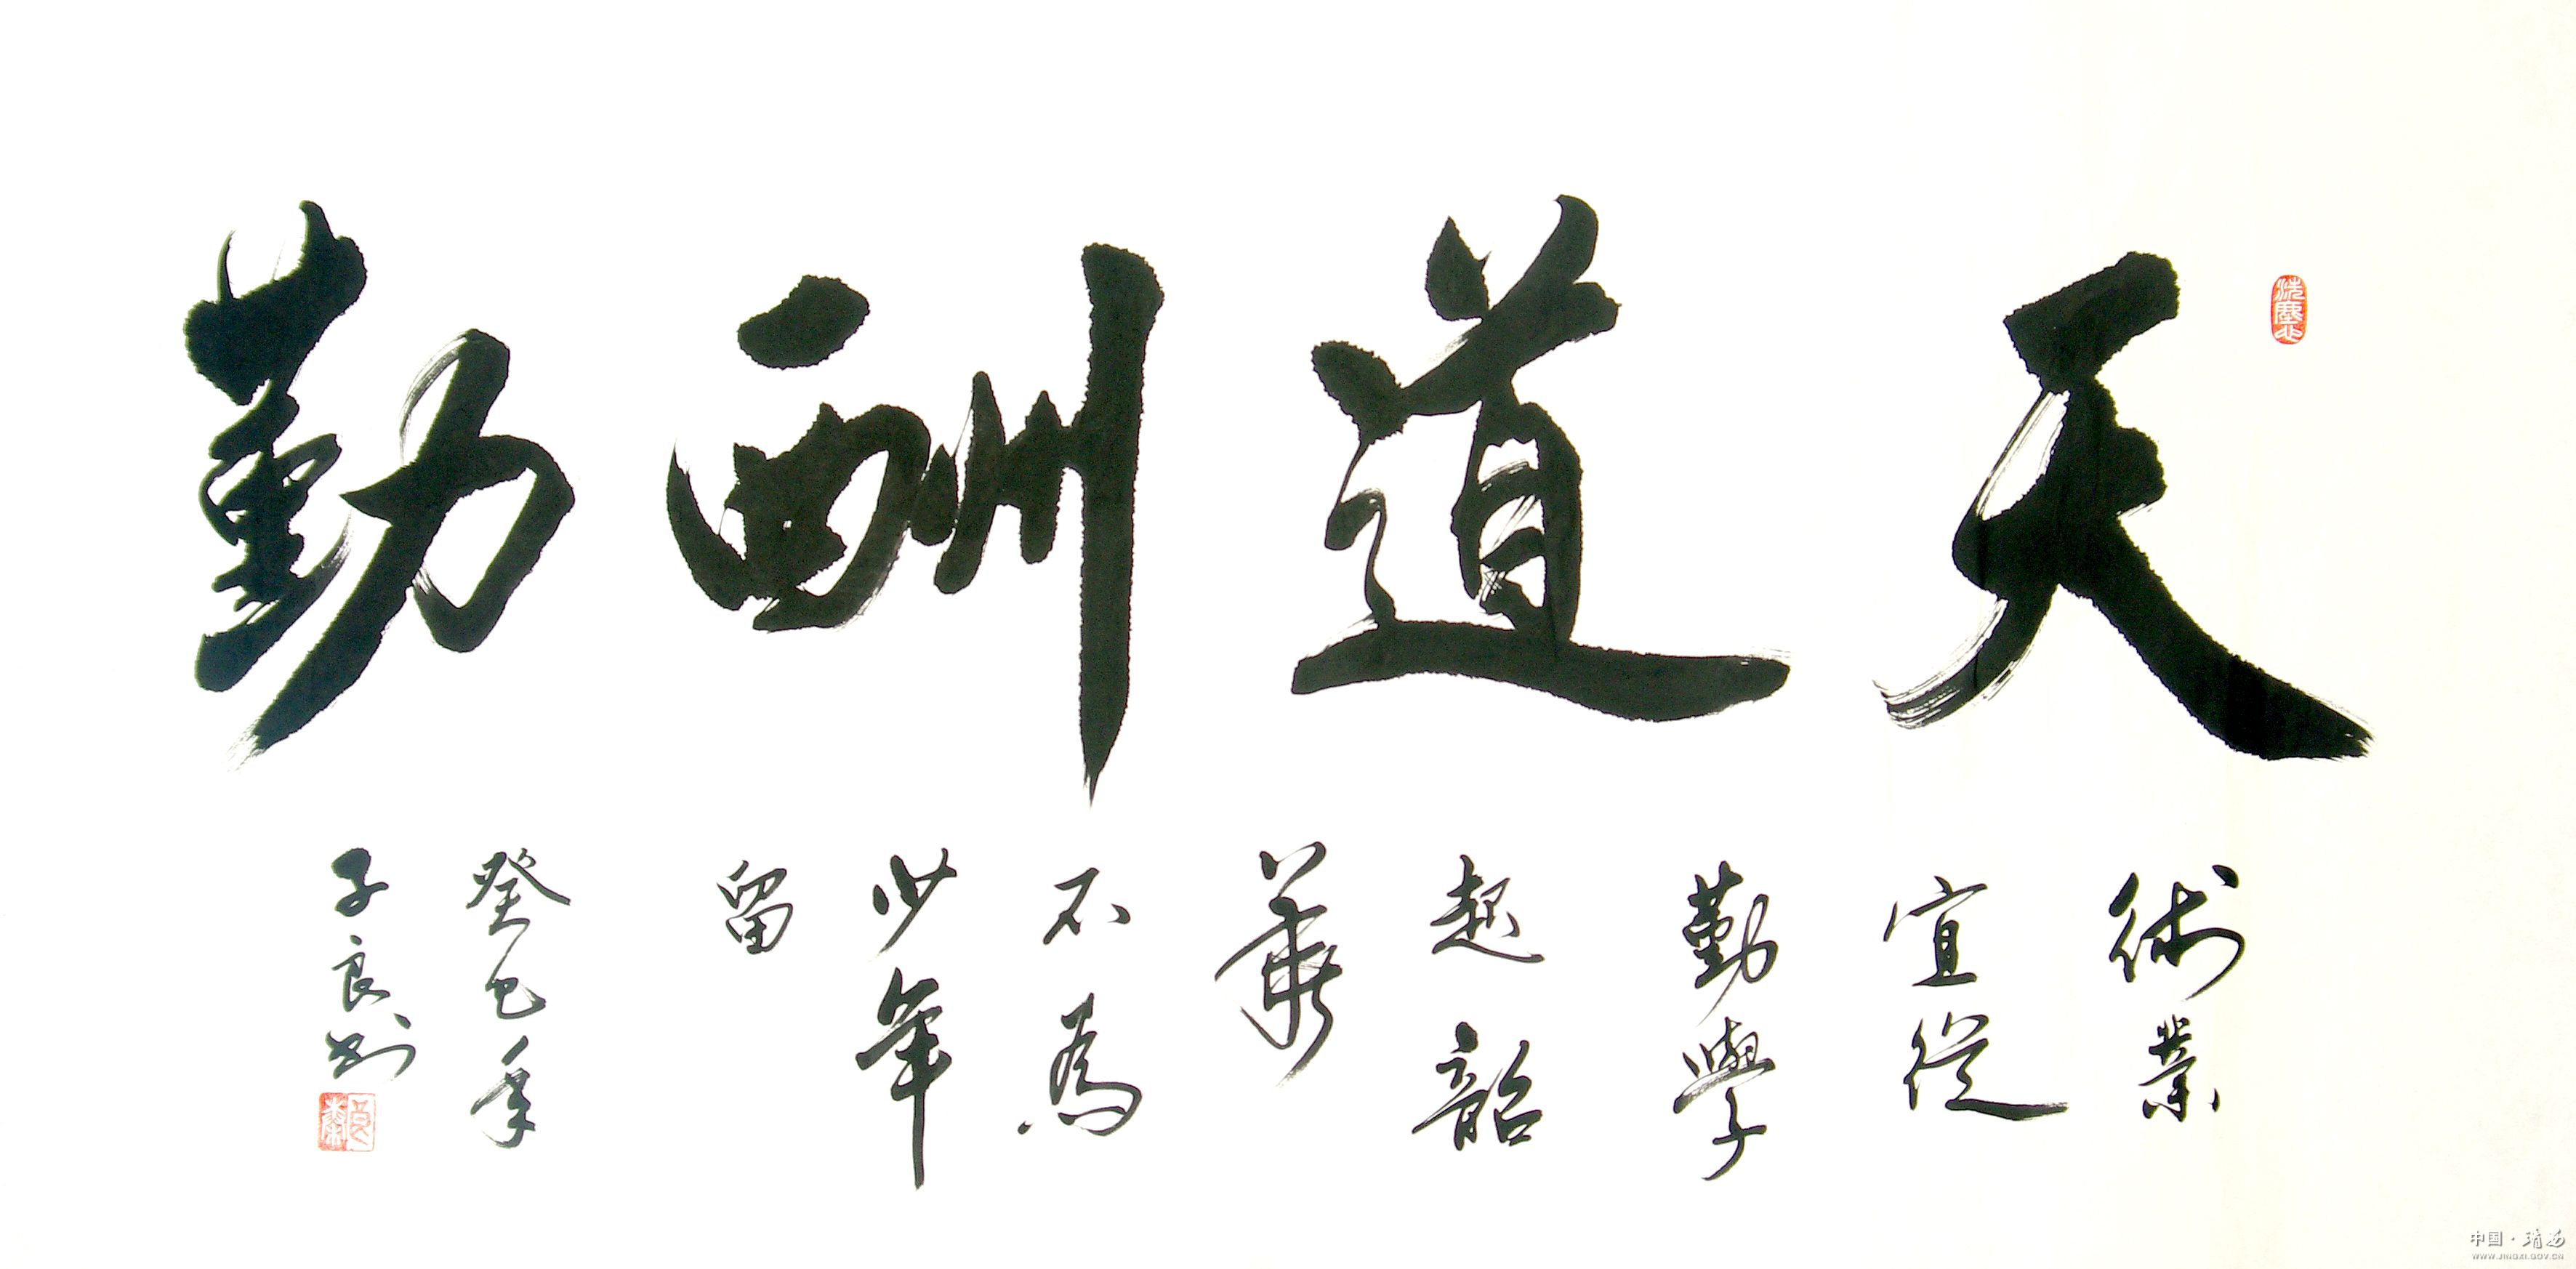 天道酬勤
術業
宜從
勤學
起韶
華
不為
少年
留
癸巳年
子良書
中国·靖西
WWW.JINGXI.GOV.CN